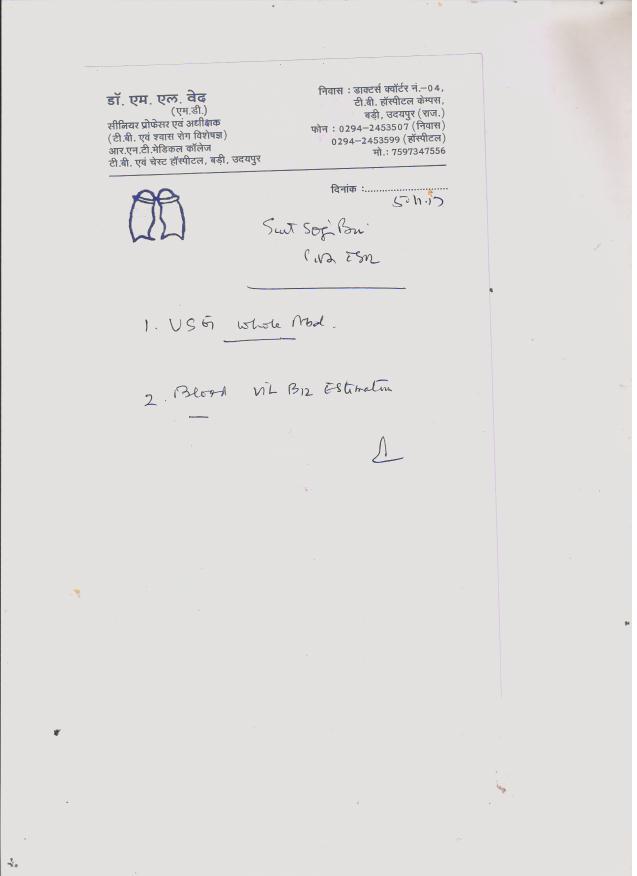 डॉ. एम. एल. वेद
(एम.डी.)
सीनियर प्रोफेसर एवं अधीक्षक
(टी.बी. एवं श्वास रोग विशेषज्ञ)
आर.एन.टी.मेडिकल कॉलेज
टी.बी. एवं चेस्ट हॉस्पीटल, बड़ी, उदयपुर
निवास : डाक्टर्स क्वॉर्टर नं.-04,
टी.बी. हॉस्पीटल केम्पस,
बड़ी, उदयपुर (राज.)
फोन : 0294-2453507 (निवास)
0294-2453599 (हॉस्पीटल)
मो.: 7597347556
दिनांक :
1. USG whole Abd.
2. Blood Vit B12 Estimation